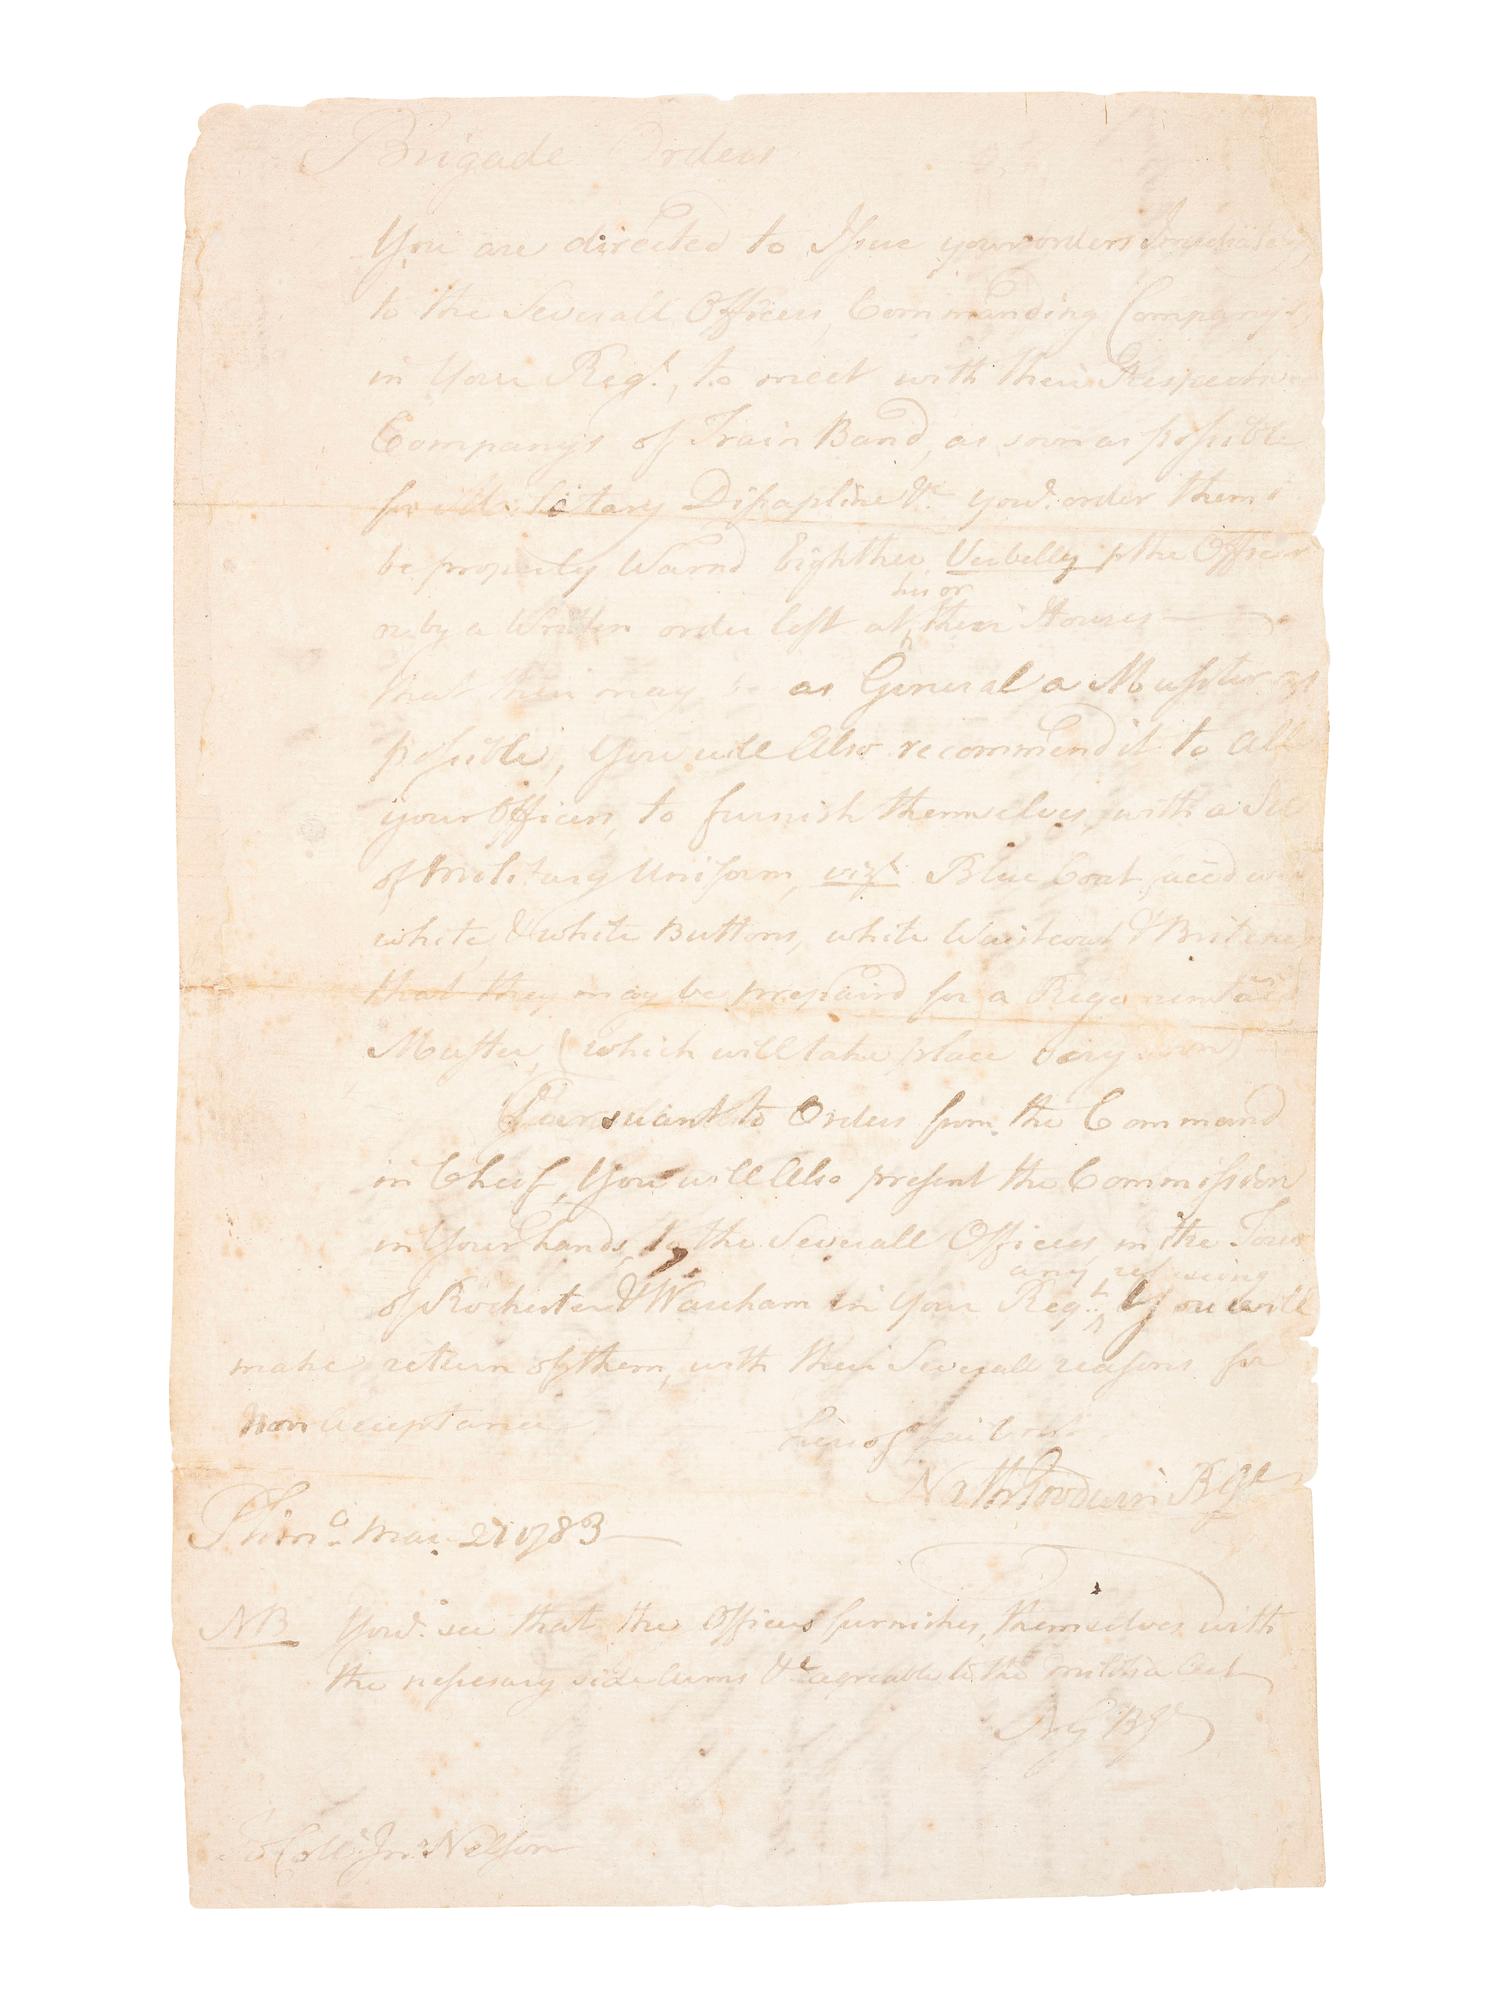 Brigade Orders
You are directed to Issue your orders Imediately,
to the Severall Officers, Commanding Companys,
in Your Regt, to meet with their Respective
Companys of Train Band, as soon as possible
for Military Dissapline &c youl. order them
be properly Warnd Eighther Verbelly p the Officer
or by a Written order left at his or their Houses
that their may be as General a Musster as
possible, You will Also recommend it to All
your Officers, to furnish themselves, with a Sut
of Military Uniform, vizt. Blue Coat, faced with
white, & white Buttons, white Waistcoat & Britches
that they may be prepaird for a Regemental
Muster, (which will take place very soon)
Pursuant to Orders from the Command
in Cheif, You will Also present the Commission
in Your hands, to the Severall Officers in the Town
of Rochester & Wareham in Your Regt. any refusing You will
make return of them, with their Severall reasons for
non Acceptance
hereof fail not
Nath Goodwin B Gl
Plimo. Mar. 27 1783
NB Youl. see that the Officers furnishes, themselves with
the nessesary side Arms &c agreable to the militia Act
NG BGl
To Coll. Jno. Nelson